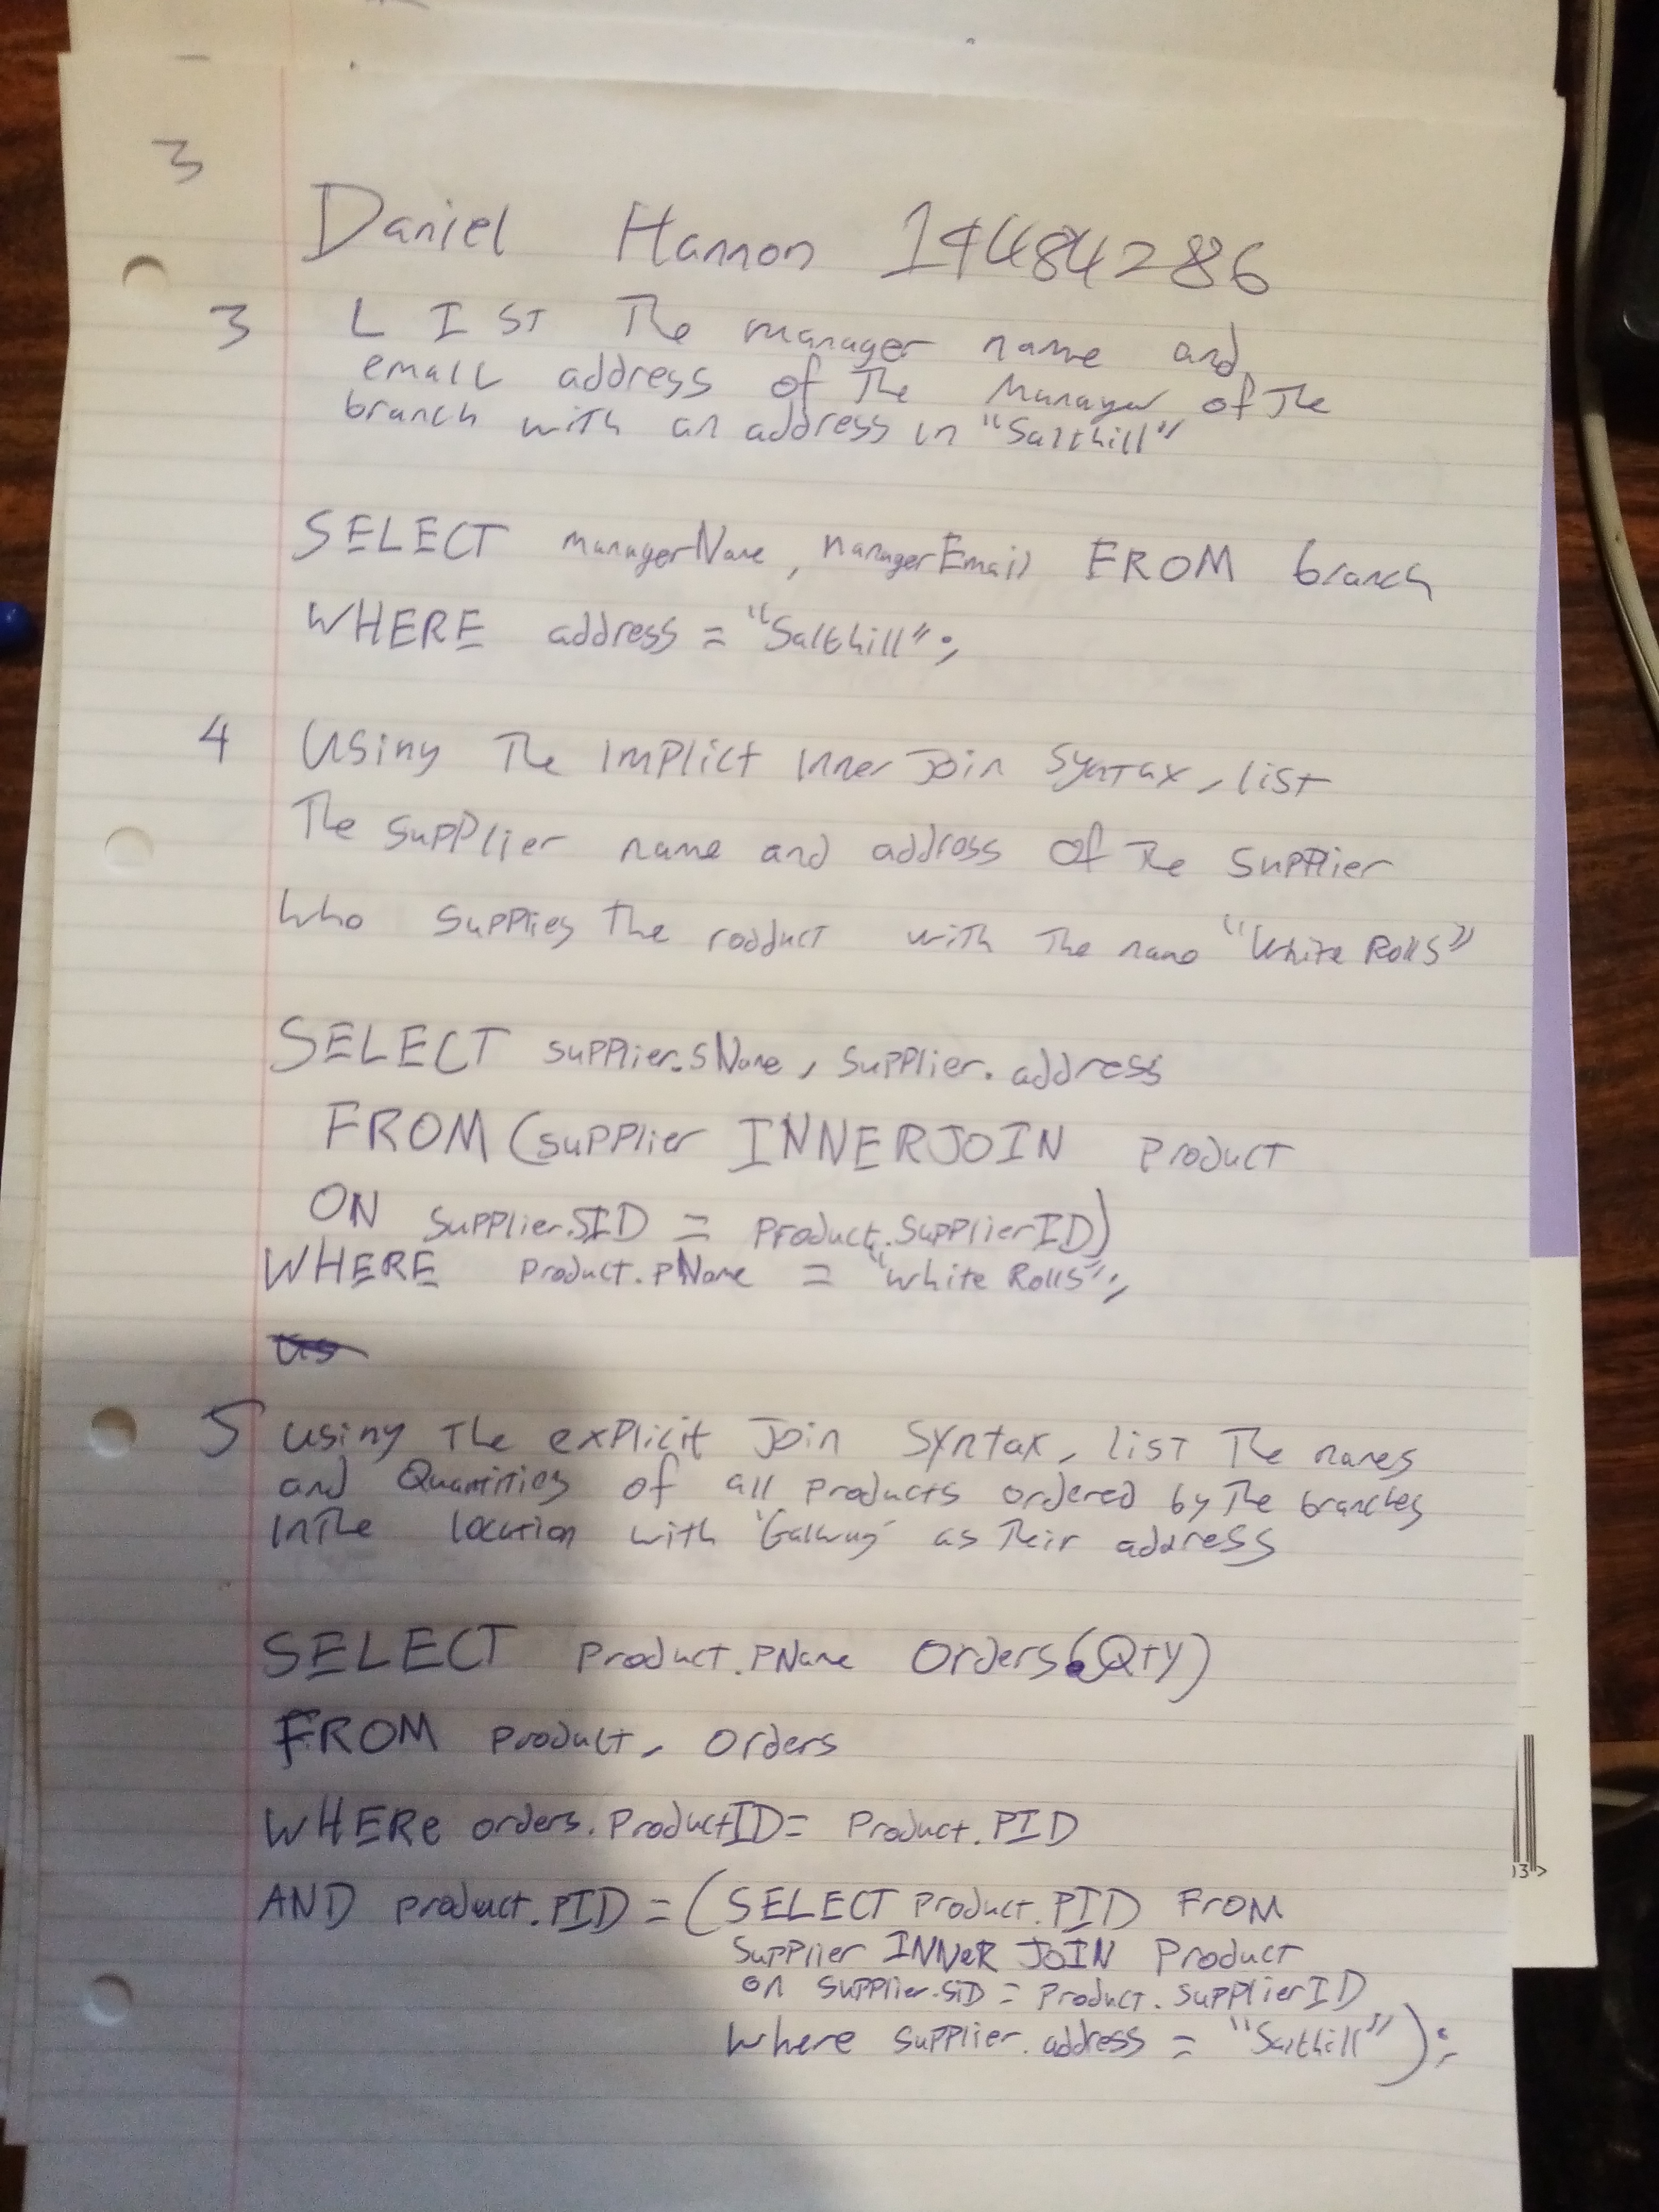 3
Daniel Hannon 19484286
3 LIST The manager name and
email address of The Manager of The
branch with an address in "Salthill"
SELECT managerName, managerEmail FROM branch
WHERE address = "Salthill";
4 Using The Implict Inner Join Syntax, list
The Supplier name and address of The Supplier
who supplies The rodduct with The name "White Rolls"
SELECT supplier.sName, supplier.address
FROM (supplier INNER JOIN Product
ON supplier.SID = Product.SupplierID)
WHERE product.pName = "White Rolls";
5 Using The explicit Join Syntax, list The names
and Quantities of all products ordered by The branches
In The location with 'Galway' as Their address
SELECT Product.PName Orders.(Qty)
FROM Product, Orders
WHERe orders.ProductID = Product.PID
AND product.PID = (SELECT Product.PID FroM
Supplier INNeR JOIN Product
on supplier.SID = Product.supplierID
Where supplier.address = "Salthill");
03>